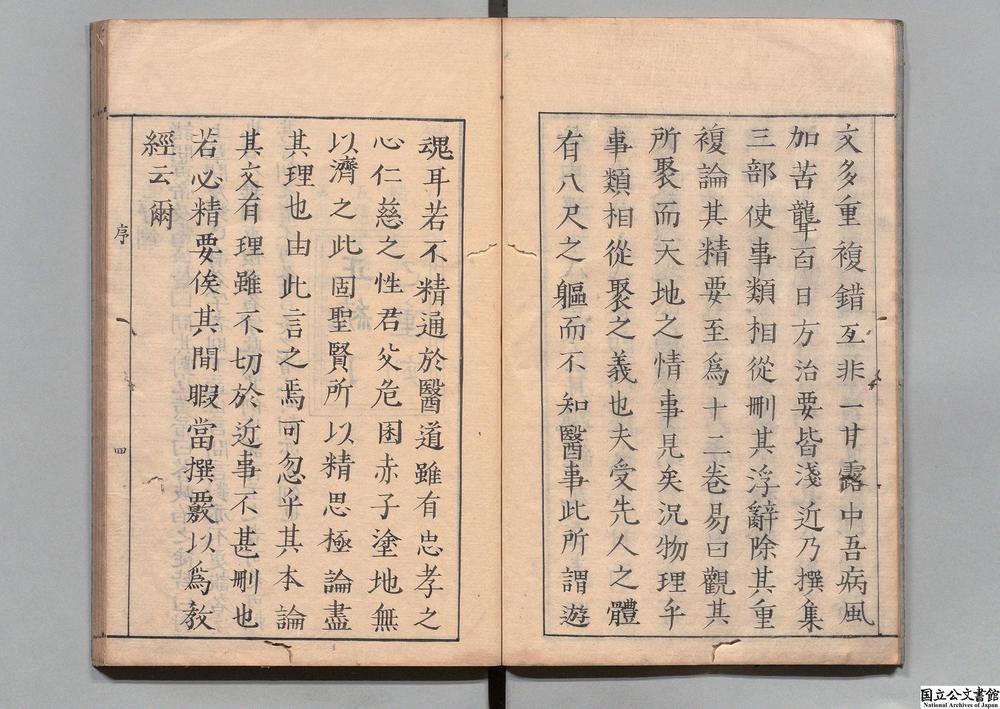 文多重複錯互非一甘露中吾病風
加苦聾百日方治要皆淺近乃撰集
三部使事類相從刪其浮辭除其重
複論其精要至爲十二卷易曰觀其
所聚而天地之情事見矣況物理乎
事類相從聚之義也夫受先人之體
有八尺之軀而不知醫事此所謂遊
魂耳若不精通於醫道雖有忠孝之
心仁慈之性君父危困赤子塗地無
以濟之此固聖賢所以精思極論盡
其理也由此言之焉可忽乎其本論
其文有理雖不切於近事不甚刪也
若必精要俟其閒暇當撰覈以爲教
經云爾
序
四
国立公文書館
National Archives of Japan